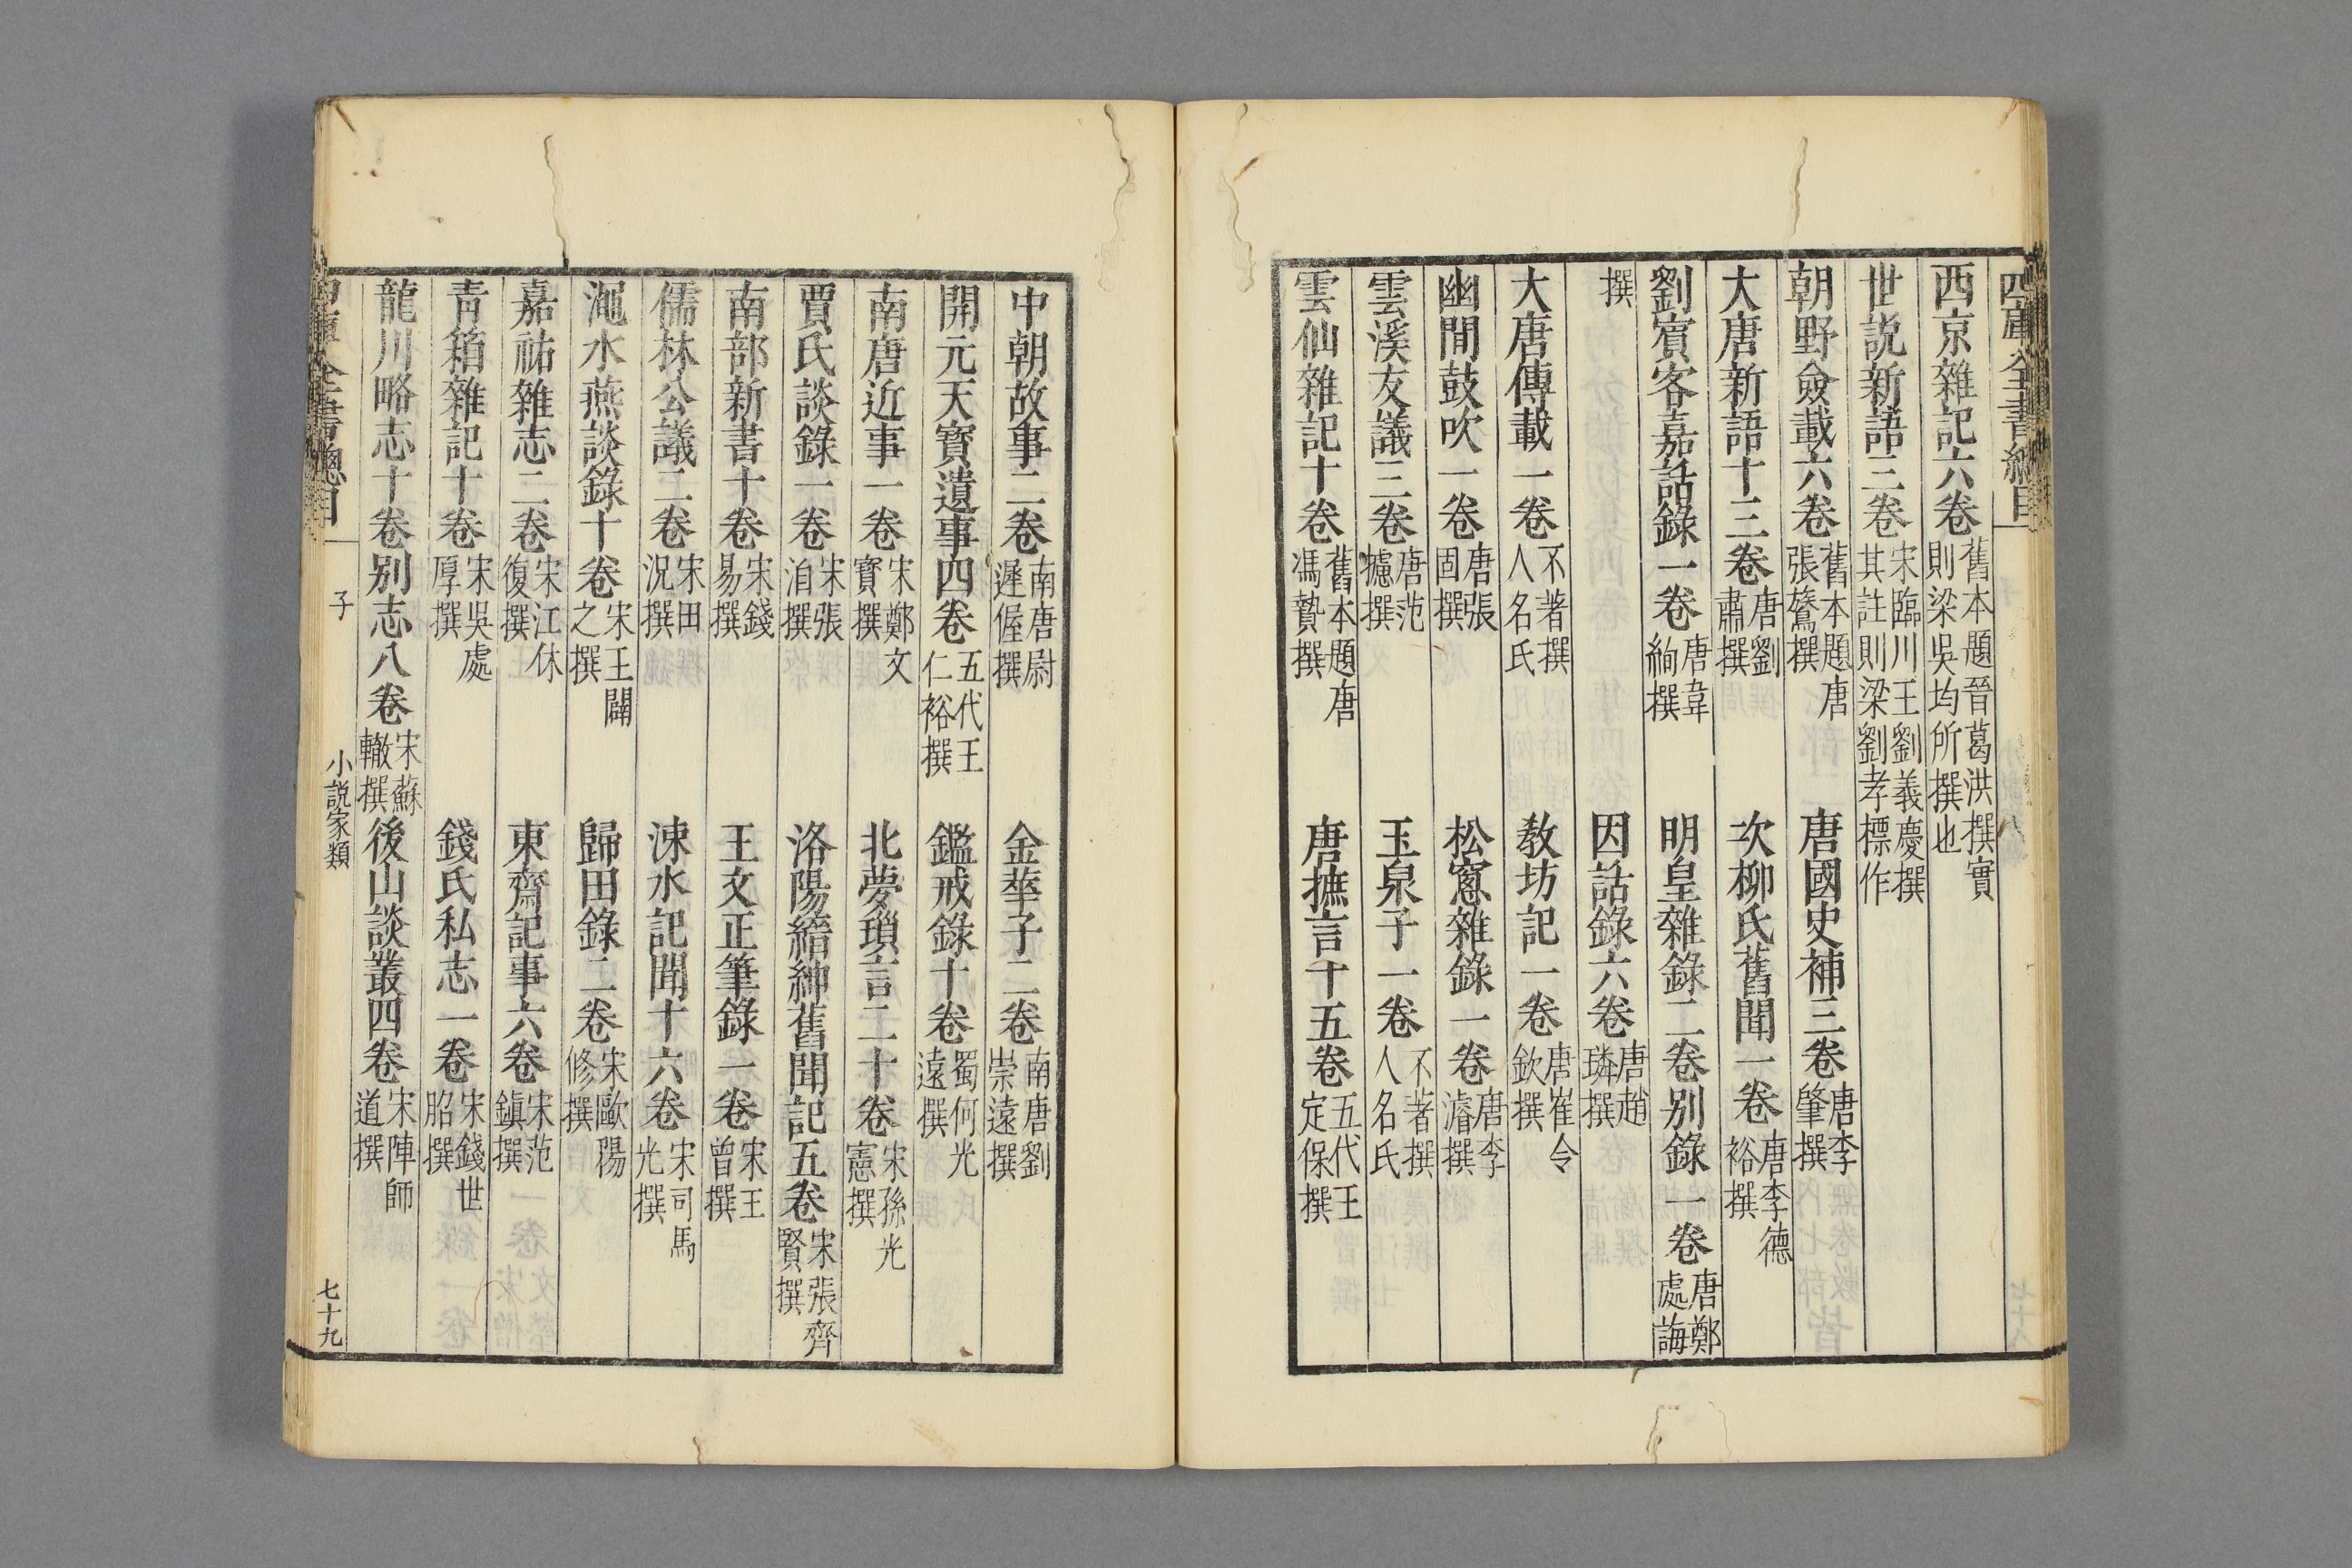 西京雜記六卷舊本題晉葛洪撰實則梁吳均所撰也
世説新語三卷宋臨川王劉義慶撰其註則梁劉孝標作
朝野僉載六卷舊本題唐張鷟撰 唐國史補三卷唐李肇撰
大唐新語十三卷唐劉肅撰 次柳氏舊聞一卷唐李德裕撰
劉賓客嘉話錄一卷唐韋絢撰 明皇雜錄二卷別錄一卷唐鄭處誨
撰 因話錄六卷唐趙璘撰
大唐傳載一卷不著撰人名氏 教坊記一卷唐崔令欽撰
幽閒鼓吹一卷唐張固撰 松窻雜錄一卷唐李濬撰
雲溪友議三卷唐范攄撰 玉泉子一卷不著撰人名氏
雲仙雜記十卷舊本題唐馮贄撰 唐摭言十五卷五代王定保撰
中朝故事二卷南唐尉遲偓撰 金華子二卷南唐劉崇遠撰
開元天寶遺事四卷五代王仁裕撰 鑑戒錄十卷蜀何光遠撰
南唐近事一卷宋鄭文寶撰 北夢瑣言二十卷宋孫光憲撰
賈氏談錄一卷宋張洎撰 洛陽縉紳舊聞記五卷宋張齊賢撰
南部新書十卷宋錢易撰 王文正筆錄一卷宋王曾撰
儒林公議二卷宋田況撰 涑水記聞十六卷宋司馬光撰
澠水燕談錄十卷宋王闢之撰 歸田錄二卷宋歐陽修撰
嘉祐雜志二卷宋江休復撰 東齋記事六卷宋范鎮撰
青箱雜記十卷宋吳處厚撰 錢氏私志一卷宋錢世昭撰
龍川略志十卷別志八卷宋蘇轍撰 後山談叢四卷宋陳師道撰
四庫全書總目 子 小説家類 七十九